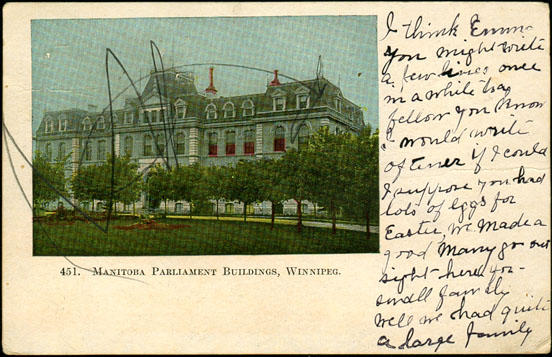 I think Emma
you might write
a few lines once
in a while to a
fellow you know
I would write
oftener if I could
I suppose you had
lots of eggs for
Easter, we made a
good many go out
sight here you
small family
well we had quite
a large family
451. MANITOBA PARLIAMENT BUILDINGS, WINNIPEG.